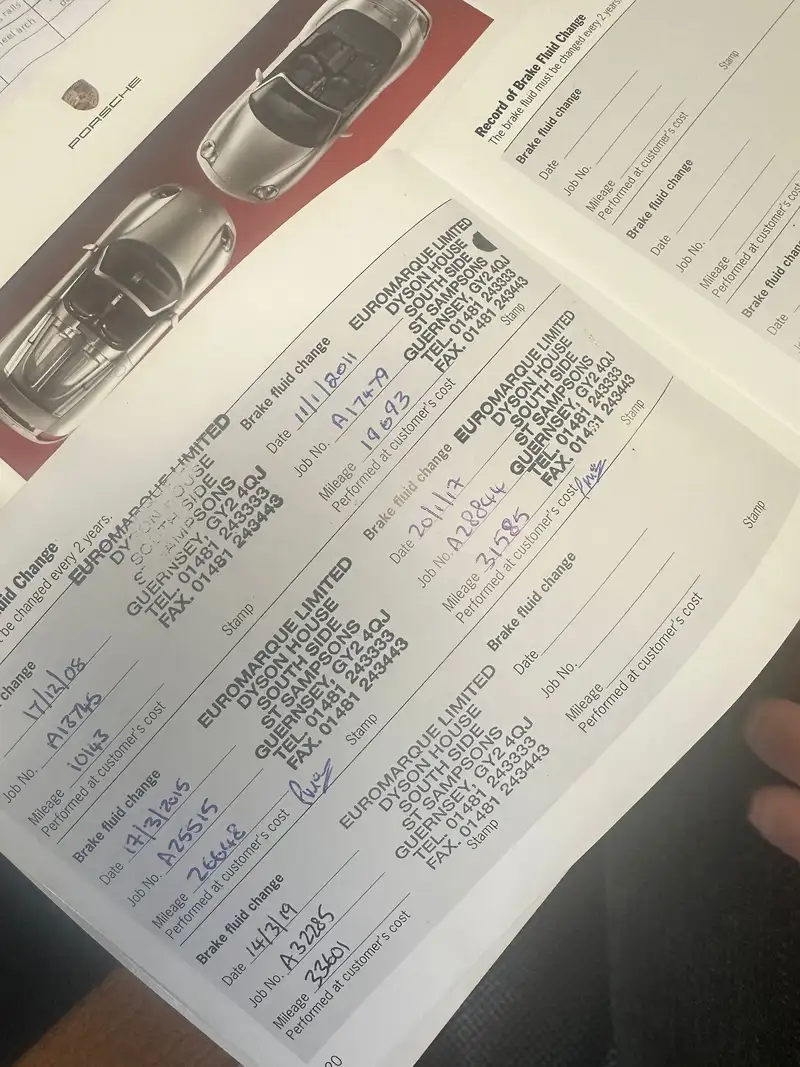 ralls
eel arch
PORSCHE
uid Change
be changed every 2 years.
change
17/12/08
Job No. A13745
Mileage 10143
Performed at customer's cost
EUROMARQUE LIMITED
DYSON HOUSE
SOUTH SIDE
SAMPSONS
GUERNSEY, GY2 4QJ
TEL. 01481 243333
FAX. 01481 243443
Stamp
Brake fluid change
Date 11/1/2011
Job No. A17479
Mileage 19693
Performed at customer's cost
EUROMARQUE LIMITED
DYSON HOUSE
SOUTH SIDE
ST SAMPSONS
GUERNSEY, GY2 4QJ
TEL. 01481 243333
FAX. 01481 243443
Stamp
Brake fluid change
Date 17/3/2015
Job No. A25515
Mileage 26648
Performed at customer's cost
EUROMARQUE LIMITED
DYSON HOUSE
SOUTH SIDE
ST SAMPSONS
GUERNSEY, GY2 4QJ
TEL. 01481 243333
FAX. 01481 243443
Stamp
Brake fluid change
Date 20/1/17
Job No. A28844
Mileage 31585
Performed at customer's cost
EUROMARQUE LIMITED
DYSON HOUSE
SOUTH SIDE
ST SAMPSONS
GUERNSEY, GY2 4QJ
TEL. 01481 243333
FAX. 01481 243443
Stamp
Brake fluid change
Date 14/3/19
Job No. A32285
Mileage 33601
Performed at customer's cost
EUROMARQUE LIMITED
DYSON HOUSE
SOUTH SIDE
ST SAMPSONS
GUERNSEY, GY2 4QJ
TEL. 01481 243333
FAX. 01481 243443
Stamp
Brake fluid change
Date
Job No.
Mileage
Performed at customer's cost
Stamp
20
Record of Brake Fluid Change
The brake fluid must be changed every 2 years.
Brake fluid change
Date
Job No.
Mileage
Performed at customer's cost
Stamp
Brake fluid change
Date
Job No.
Mileage
Performed at customer's cost
Brake fluid chan
Date